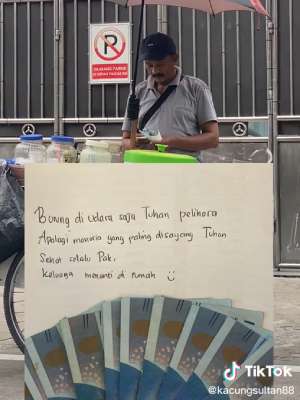 P
Burung di udara saja Tuhan pelihara
Apalagi manusia yang paling disayang Tuhan
Sehat selalu Pak,
Keluarga menanti di rumah
TikTok
@kacungsultan88